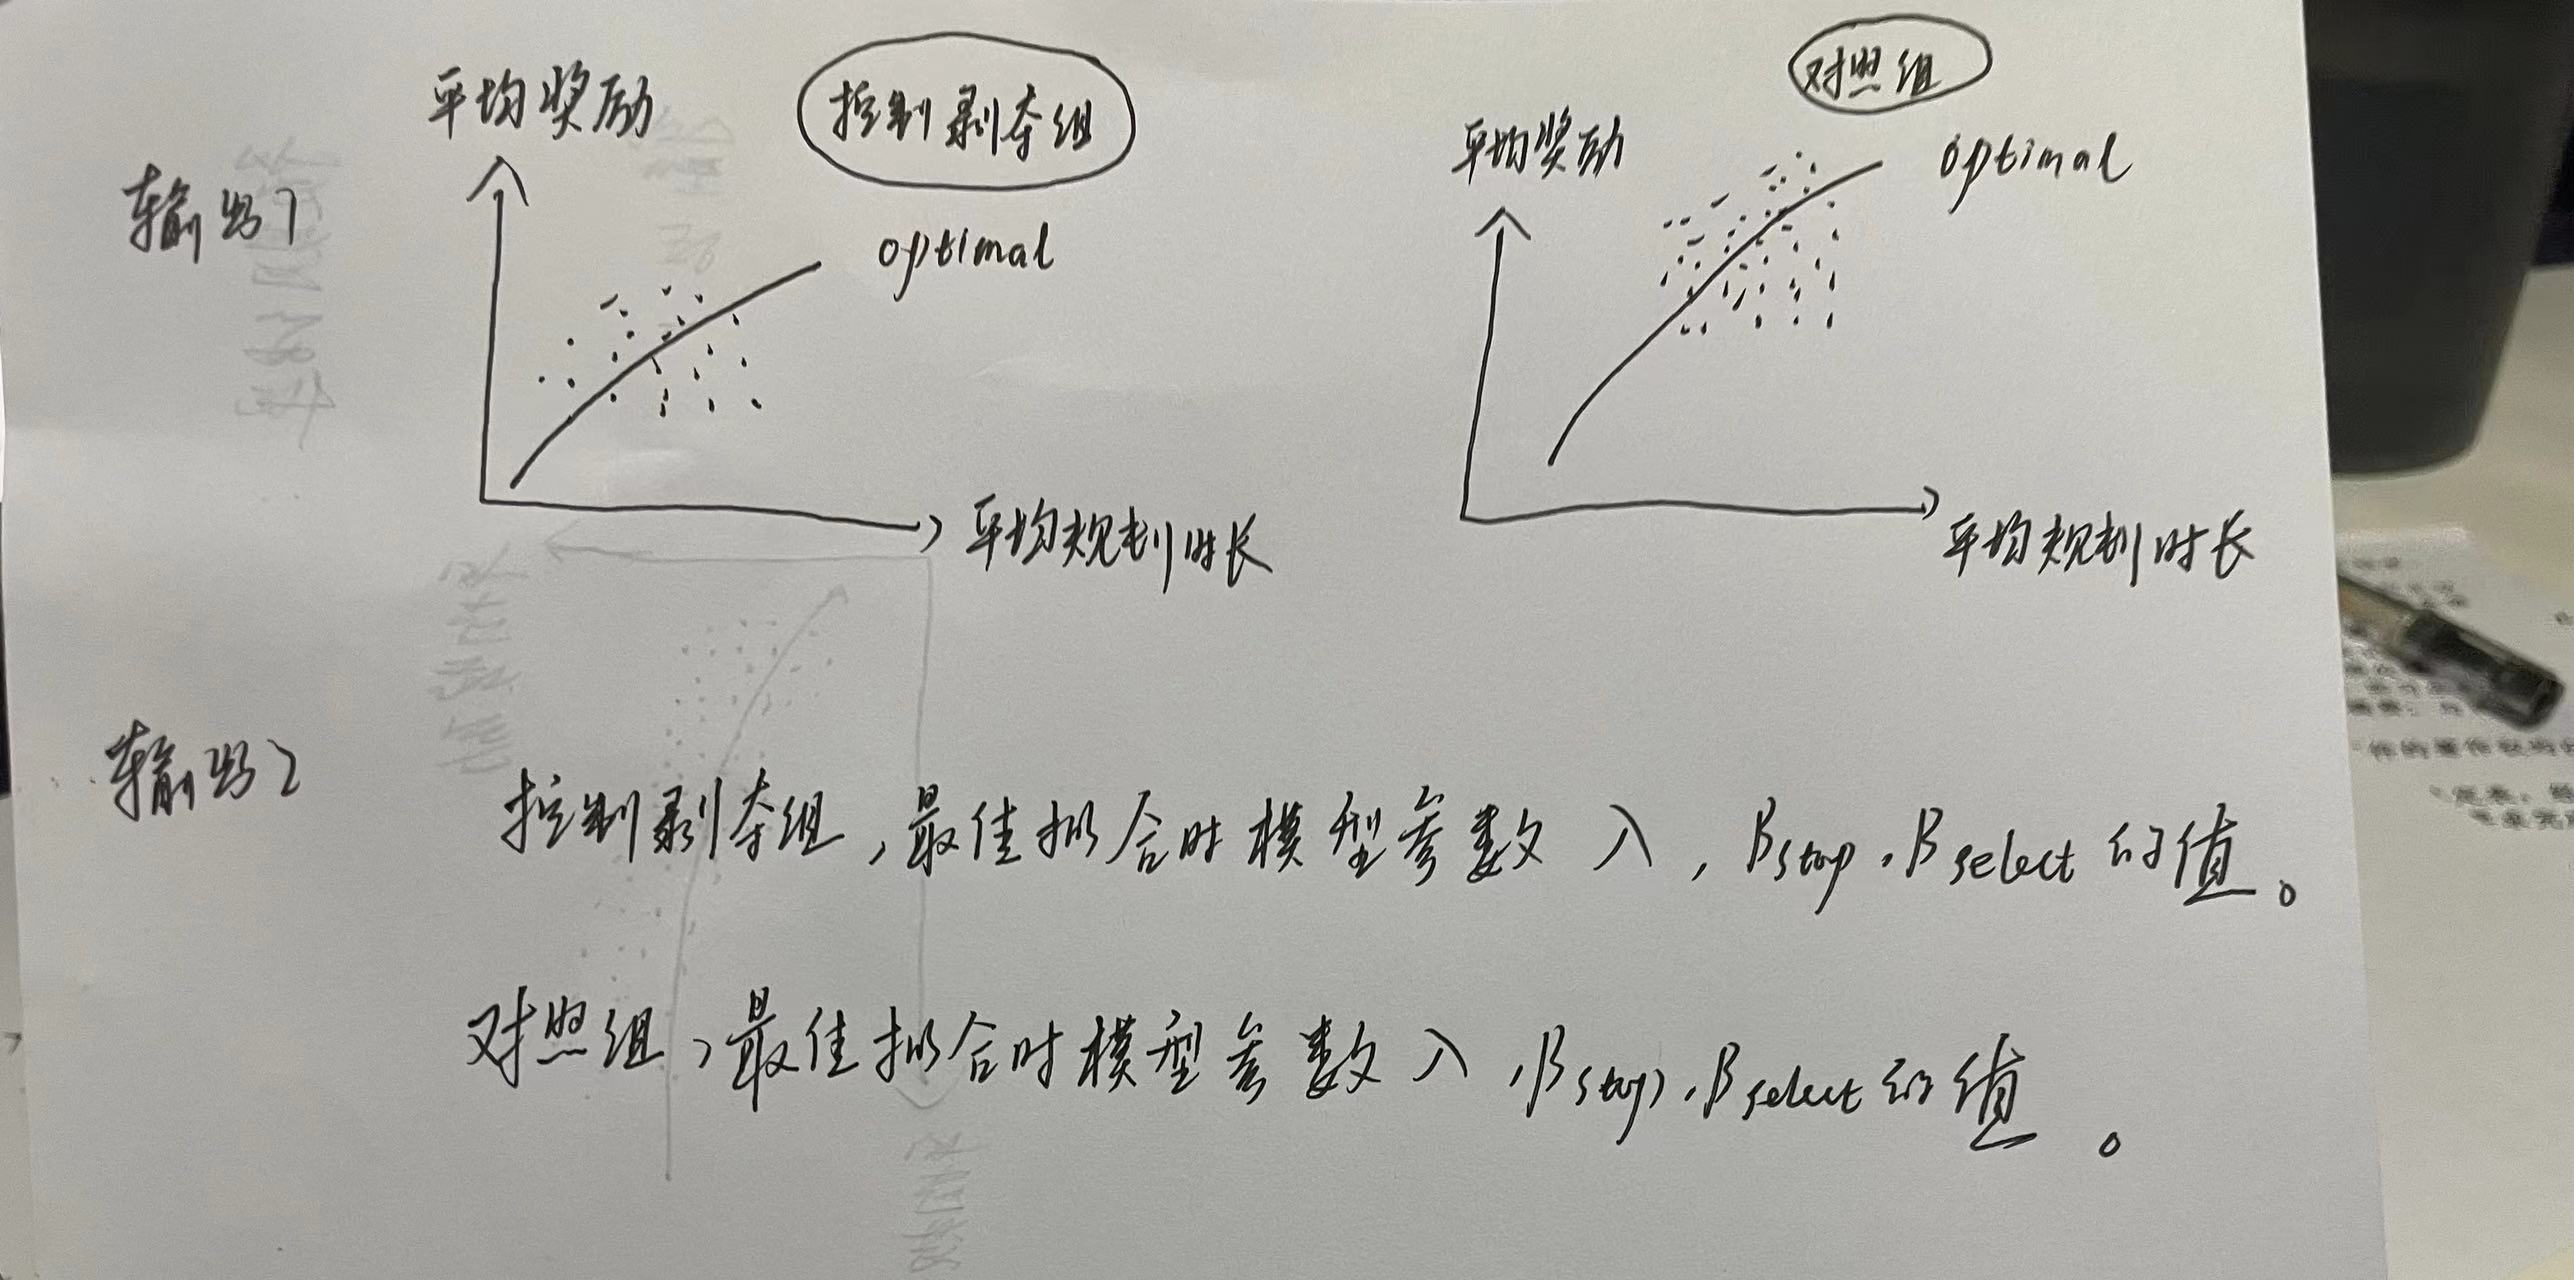 输出1
平均奖励
控制剥夺组
optimal
平均规划时长
对照组
平均奖励
optimal
平均规划时长
输出2
控制剥夺组,最佳拟合时模型参数 λ, βstop, βselect 的值。
对照组,最佳拟合时模型参数 λ, βstop, βselect 的值。